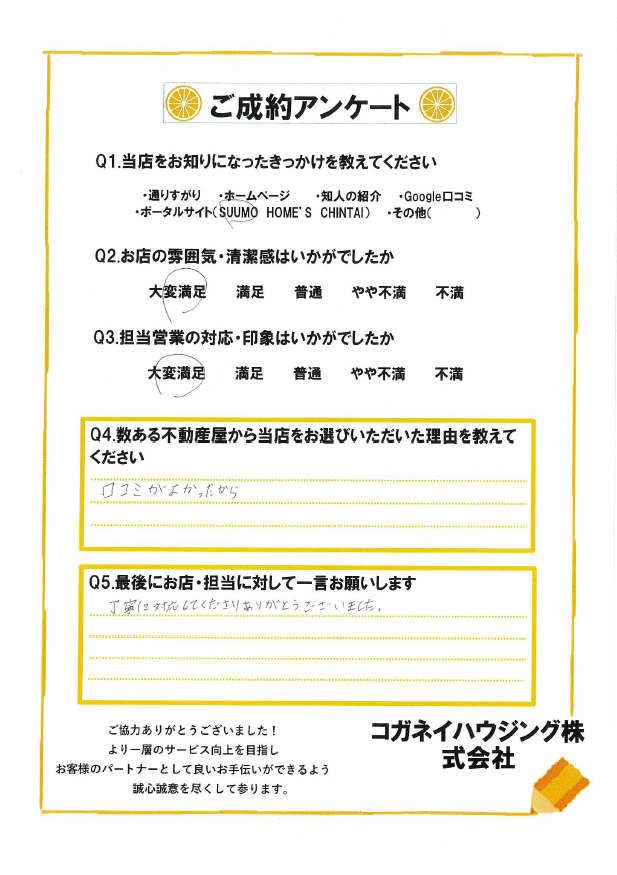 ご成約アンケート
Q1.当店をお知りになったきっかけを教えてください
・通りすがり ・ホームページ ・知人の紹介 ・Google口コミ
・ポータルサイト(SUUMO HOME'S CHINTAI) ・その他( )
Q2.お店の雰囲気・清潔感はいかがでしたか
大変満足 満足 普通 やや不満 不満
Q3.担当営業の対応・印象はいかがでしたか
大変満足 満足 普通 やや不満 不満
Q4.数ある不動産屋から当店をお選びいただいた理由を教えて
ください
口コミがよかったから
Q5.最後にお店・担当に対して一言お願いします
丁寧に対応してくださりありがとうございました。
ご協力ありがとうございました！
より一層のサービス向上を目指し
お客様のパートナーとして良いお手伝いができるよう
誠心誠意を尽くして参ります。
コガネイハウジング株
式会社